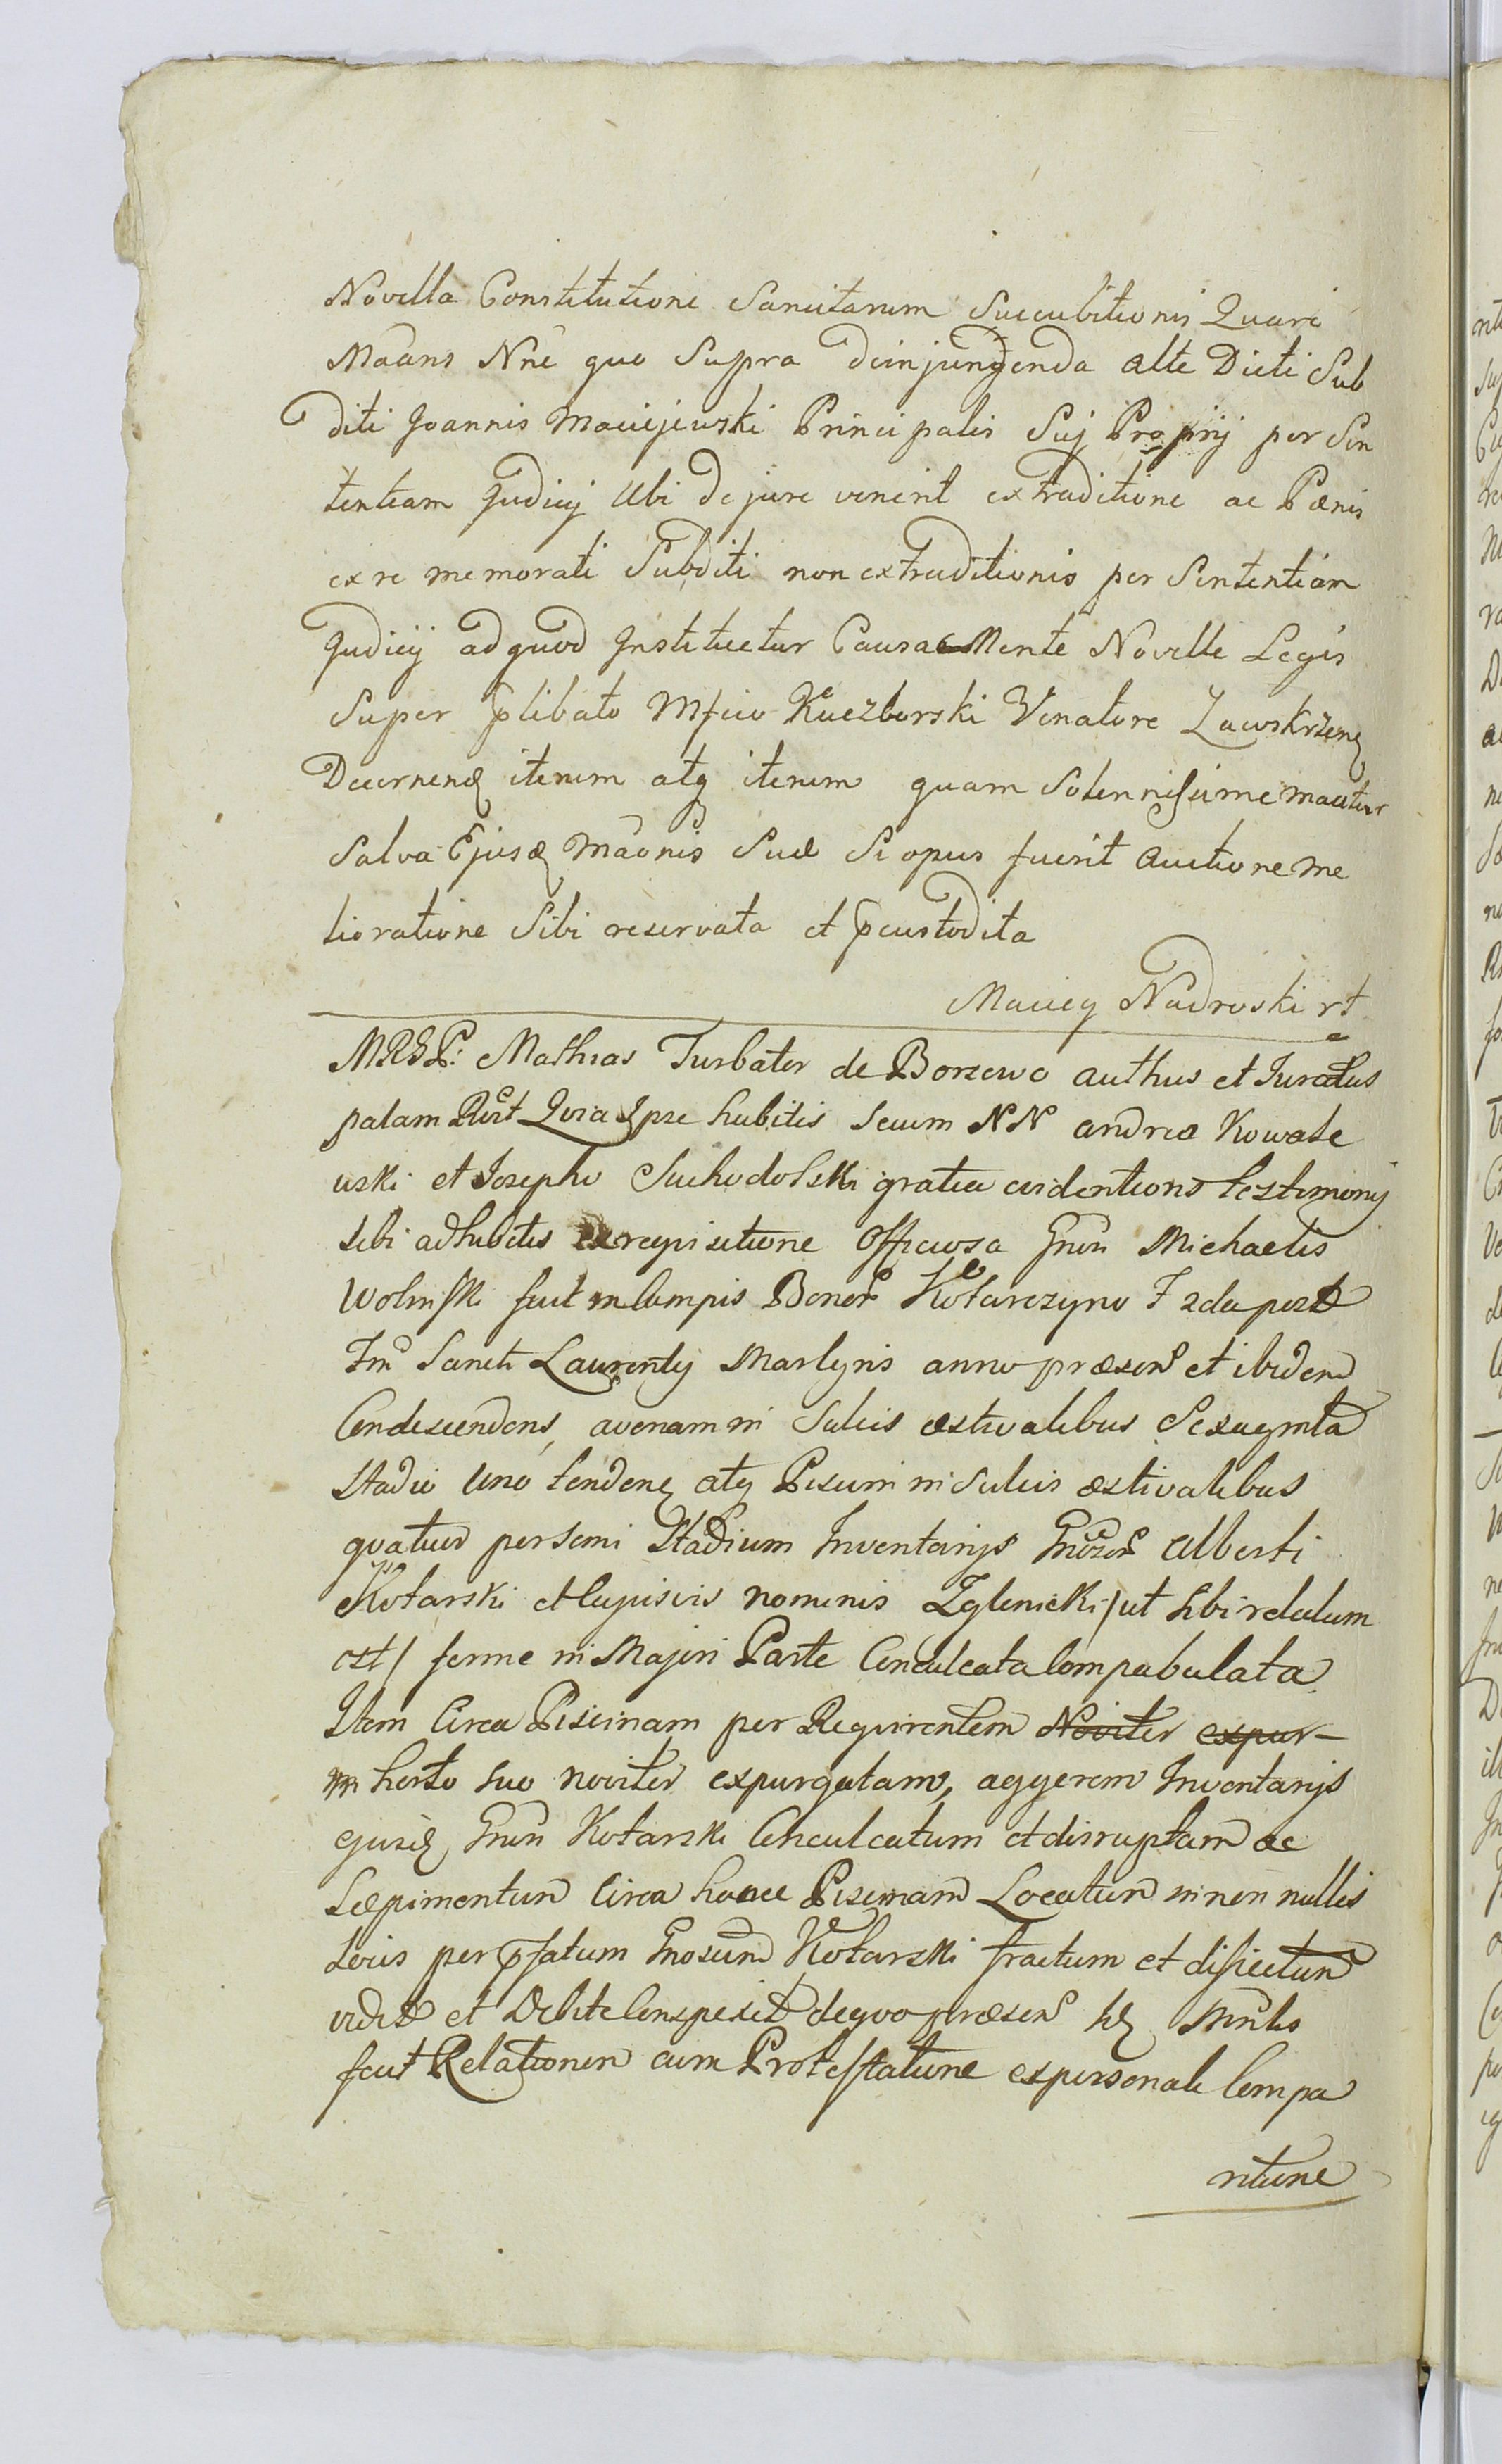 Novella Constitutione Sancitarum Succubitionis Quare
Maans Nne quo Supra deinjungenda alte Dicti Sub
diti Joannis Maciejewski Principalis Suj Proprij per Sen
tentiam Judicij Ubi de jure venerit extraditione ac Pœnis
ex re memorati Subditi non extraditionis per Sententiam
Judicij ad quod Instituetur Causa Mente Novelle Legis
Super plibato Mfico Kuczborski Venatore Zawskrzen
Decernend iterum atq iterum quam Solennissime
Salva Ejusd Maonis Suæ Si opus fuerit Auctione me
lioratione Sibi reservata et pcustodita
Maciey Nadroski
MRGP: Mathias Turbator de Borzewo authus et Juratus
palam Quia Ipse habitis Secum NN andrea Kowale
wski et Josepho Suchodolski gratia evidentioris testimonij
sibi adhibitis ex requisitione Officiosa Gnsi Michaelis
Wolinski fuit in Campis Bonor Kotarczyno F 2da post
Fm Sancti Laurentij Martyris anno præsen et ibidem
Condescendens, avenam in Sulcis æstivalibus Sexaginta
Stadio Uno tendens atq Pisum in Sulcis æstivalibus
quatuor per Semi Stadium Inventarijs Gnosor Alberti
Kotarski et Cujusvis nominis Zglenicki / ut Sibi relatum
est / ferme in Majori Parte Conculcata Compabulata
Item Circa Piscinam per Requirentem Noviter expur-
in horto suo noviter expurgatam, aggerem Inventarijs
ejusd Gnsi Kotarski Conculcatum et disruptam ac
Sæpimentum Circa hance Piscinam Locatum in non nullis
Locis per pfatum Gnosum Kotarski fractum et disjectum
vidit et Debite Conspexit de quo præsen
fecit Relationem cum Protestatione ex personali Compa
ritione